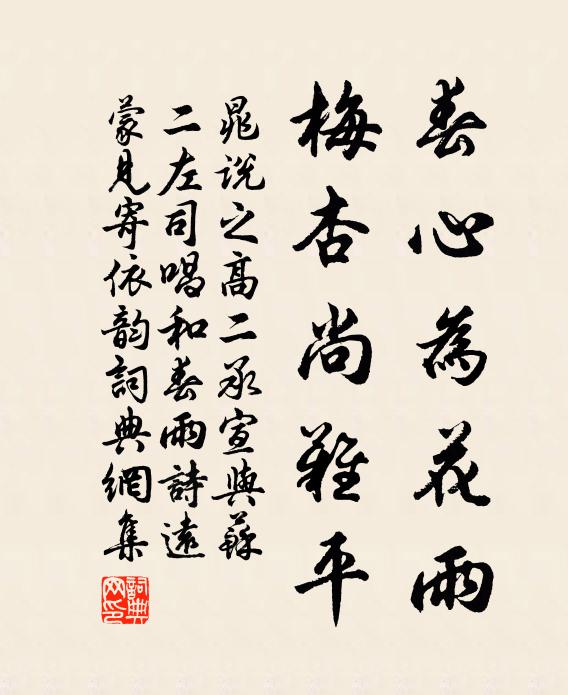 春心為花雨
梅杏尚難平
晁說之高二承宣與蘇
二左司唱和春雨詩遠
蒙見寄依韵詞典網集
詞典